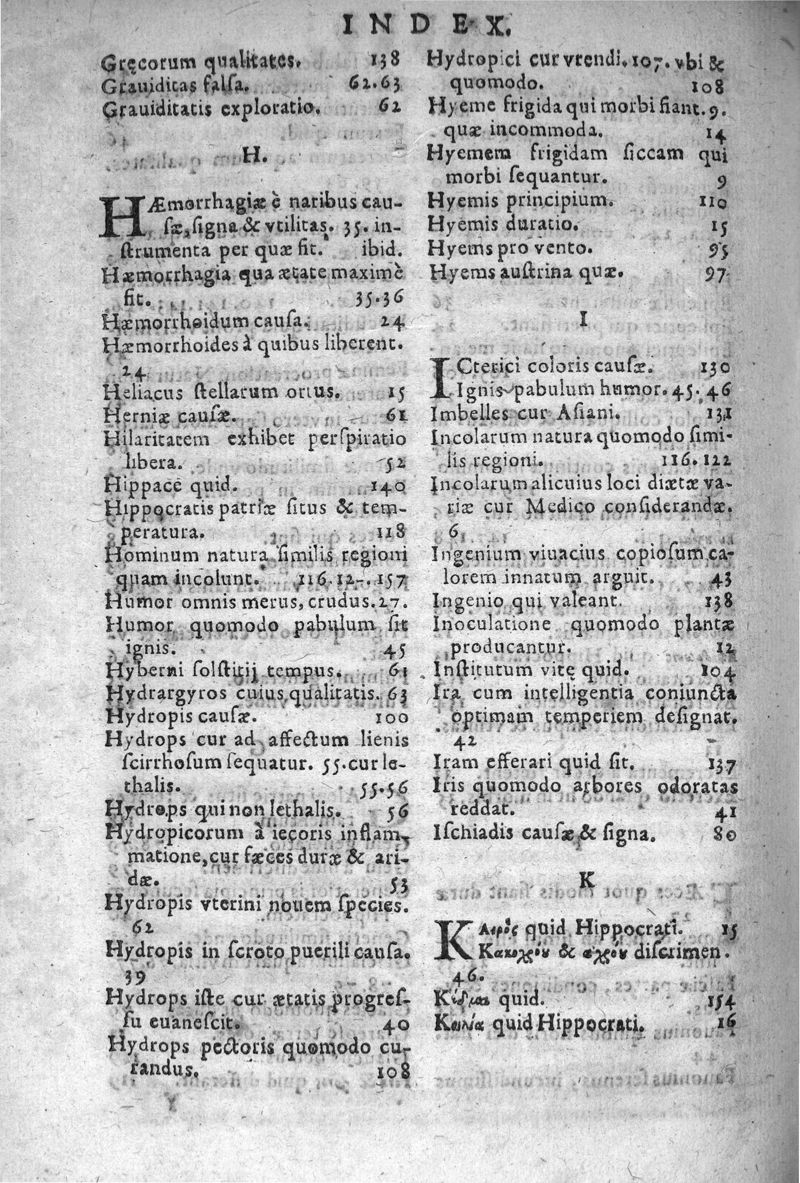 INDEX.
Gręcorum qualitates. 138
Grauiditas falſa. 62.63
Grauiditatis exploratio. 62
H.
HÆmorrhagiæ è naribus cau-
ſæ, ſigna & vtilitas. 35. in-
ſtrumenta per quæ fit. ibid.
Hæmorrhagia qua ætate maximè
fit. 35.36
Hæmorrhoidum cauſa. 24
Hæmorrhoides à quibus liberent.
24
Heliacus ſtellarum ortus. 15
Herniæ cauſæ. 61
Hilaritatem exhibet perſpiratio
libera. 52
Hippace quid. 140
Hippocratis patriæ ſitus & tem-
peratura. 118
Hominum natura ſimilis regioni
quam incolunt. 116.12-.157
Humor omnis merus, crudus. 27.
Humor quomodo pabulum ſit
ignis. 45
Hyberni ſolſtitij tempus. 61
Hydrargyros cuius qualitatis. 63
Hydropis cauſæ. 100
Hydrops cur ad affectum lienis
ſcirrhoſum ſequatur. 55. cur le-
thalis. 55.56
Hydrops qui non lethalis. 56
Hydropicorum à iecoris inflam-
matione, cur fæces duræ & ari-
dæ. 53
Hydropis vterini nouem ſpecies.
62
Hydropis in ſcroto puerili cauſa.
39
Hydrops iſte cur ætatis progreſ-
ſu euaneſcit. 40
Hydrops pectoris quomodo cu-
randus. 108
Hydropici cur vrendi. 107. vbi &
quomodo. 108
Hyeme frigida qui morbi fiant. 9.
quæ incommoda. 14
Hyemem frigidam ſiccam qui
morbi ſequantur. 9
Hyemis principium. 110
Hyemis duratio. 15
Hyems pro vento. 95
Hyems auſtrina quæ. 97
I
ICterici coloris cauſæ. 130
Ignis pabulum humor. 45. 46
Imbelles cur Aſiani. 131
Incolarum natura quomodo ſimi-
lis regioni. 116.122
Incolarum alicuius loci diætæ va-
riæ cur Medico conſiderandæ.
6
Ingenium viuacius copioſum ca-
lorem innatum arguit. 43
Ingenio qui valeant. 138
Inoculatione quomodo plantæ
producantur. 12
Inſtitutum vitę quid. 104
Ira cum intelligentia coniuncta
optimam temperiem deſignat.
42
Iram efferari quid ſit. 137
Iris quomodo arbores odoratas
reddat. 41
Iſchiadis cauſæ & ſigna. 80
K
ΚΑιρὸς quid Hippocrati. 15
Κακοχρόυ & αχρόυ diſcrimen.
46.
quid. 154
Κοιλία quid Hippocrati. 16